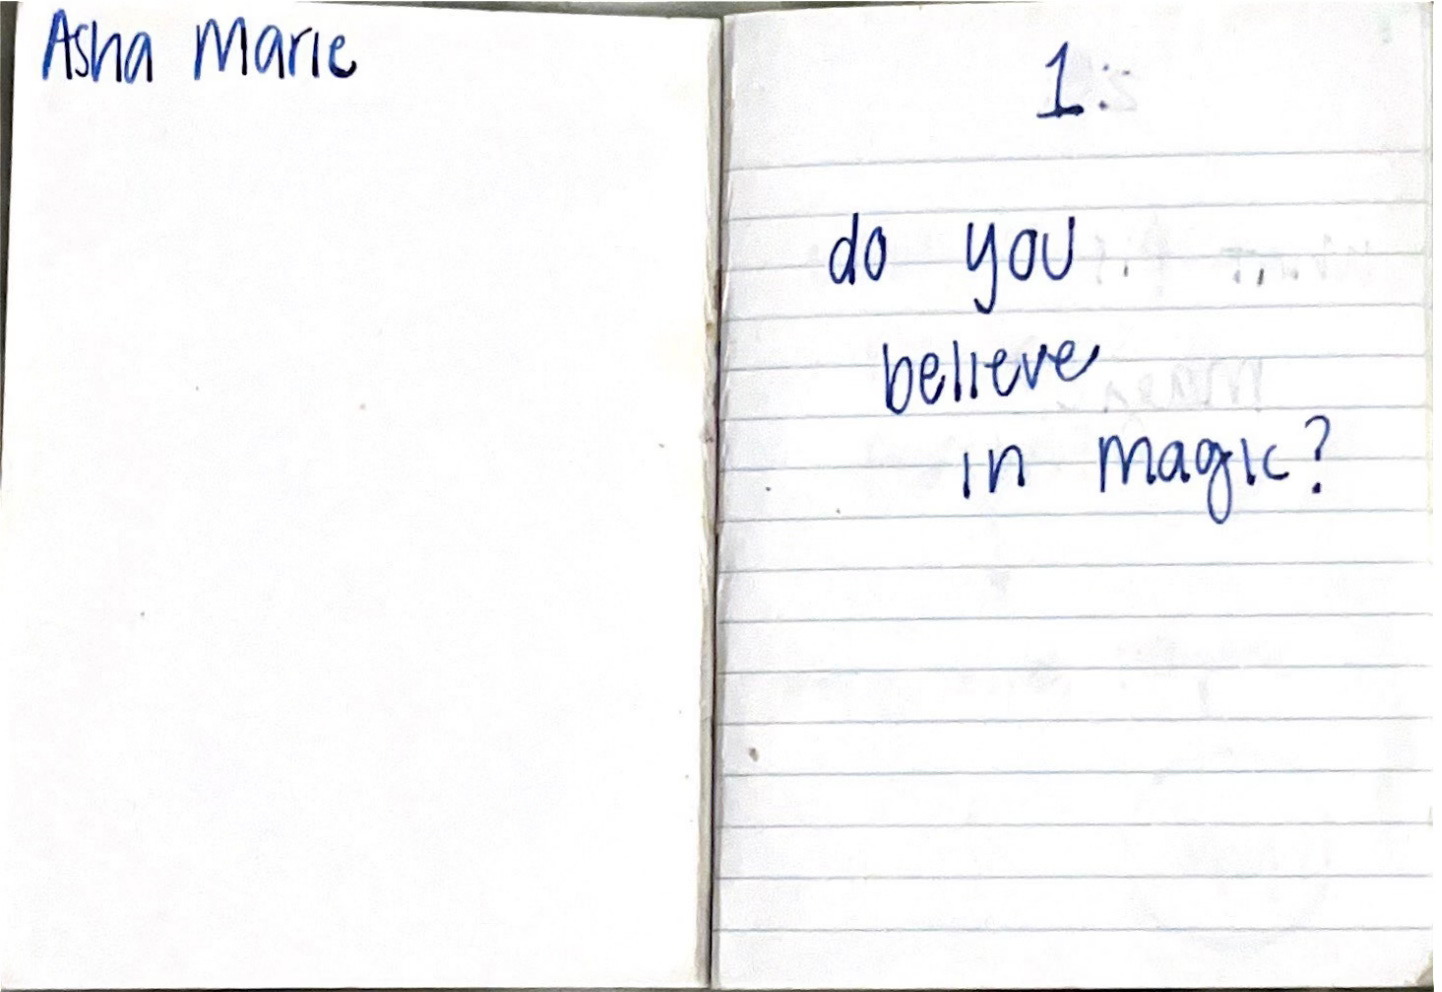 Asha Marie
1.
do you
believe
in magic?